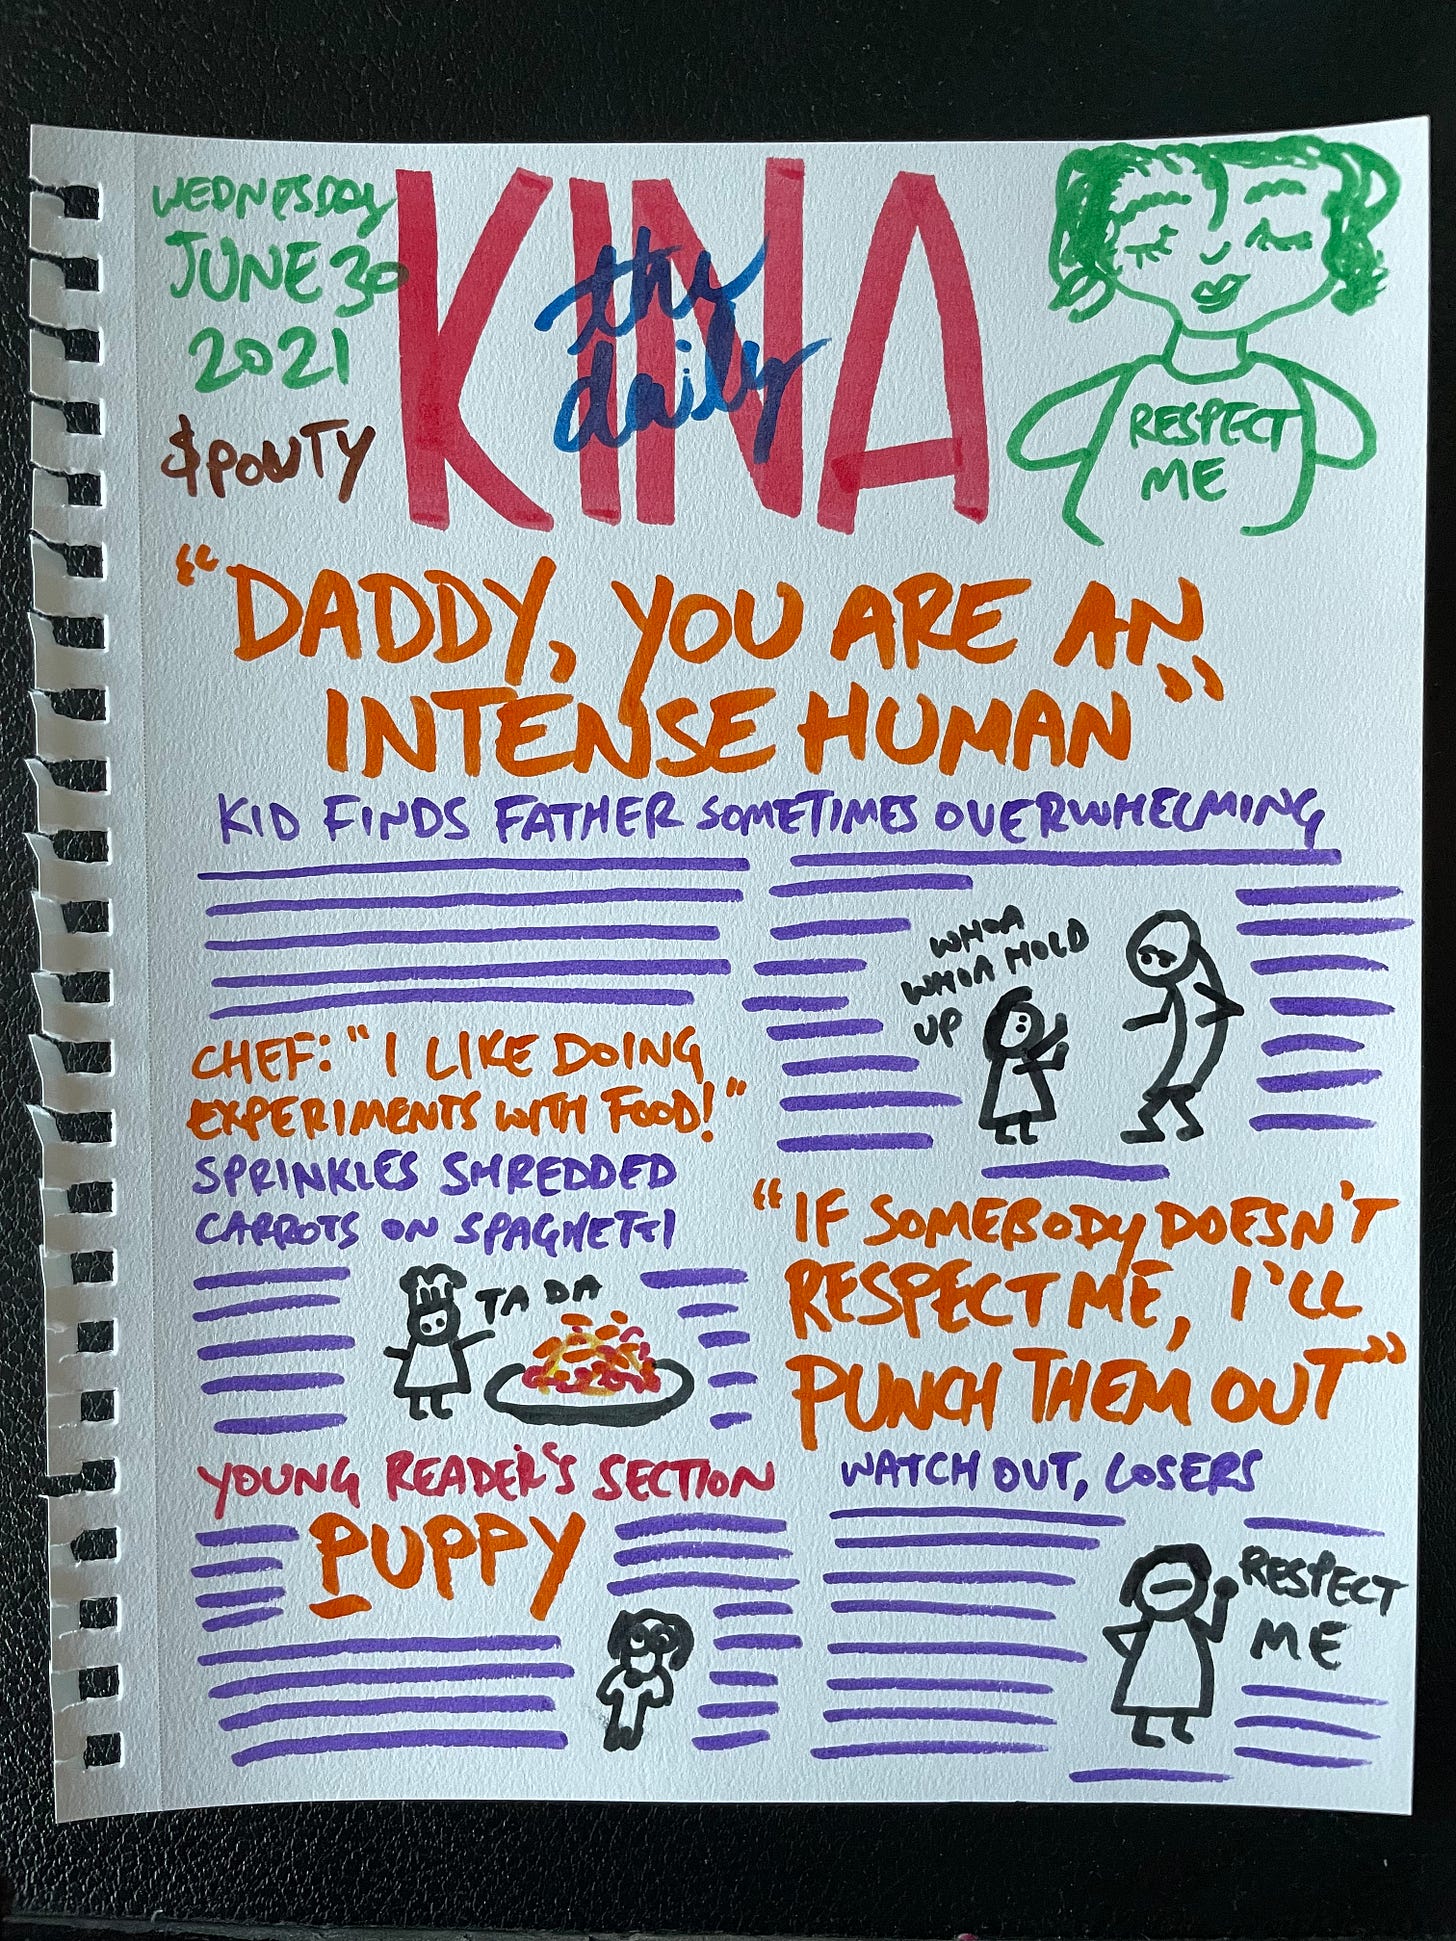 WEDNESDAY
JUNE 30
2021
$POUTY
the
daily
KINA
RESPECT
ME
"DADDY, YOU ARE AN
INTENSE HUMAN"
KID FINDS FATHER SOMETIMES OVERWHELMING
WHOA
WHOA HOLD
UP
CHEF: "I LIKE DOING
EXPERIMENTS WITH FOOD!"
SPRINKLES SHREDDED
CARROTS ON SPAGHETTI
TA DA
"IF SOMEBODY DOESN'T
RESPECT ME, I'LL
PUNCH THEM OUT"
WATCH OUT, LOSERS
RESPECT
ME
YOUNG READER'S SECTION
PUPPY